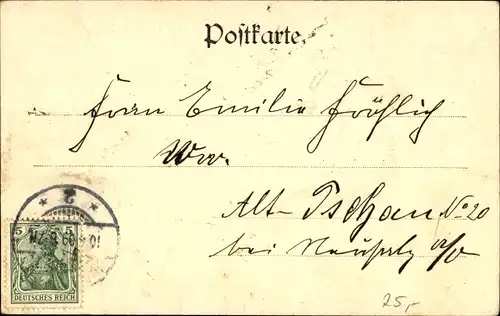 Postkarte.
Frau Emilie Fröhlich
Ww.
Alt-Tschau No 20
bei Neusalz a/o
5 5
DEUTSCHES REICH
* 2 *
25,-